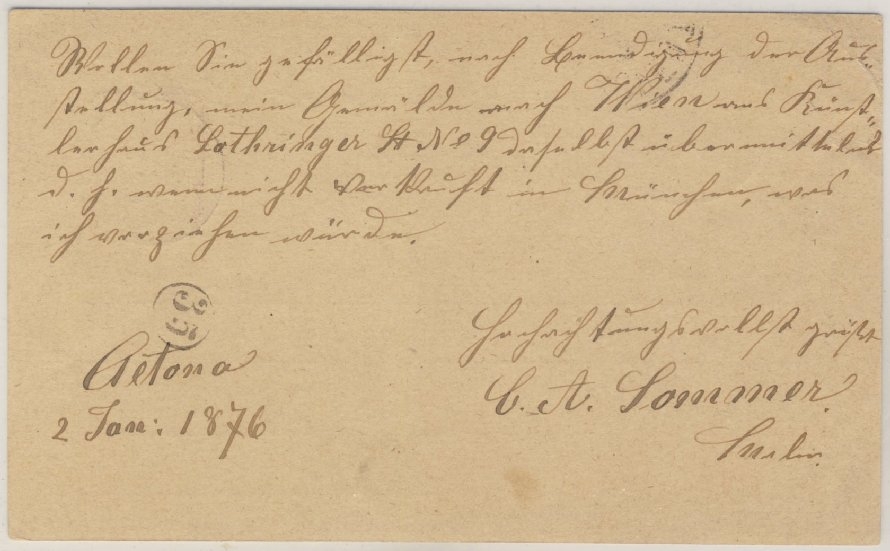 Wollen Sie gefälligst, nach Beendigung der Aus-
stellung, mein Gemälde nach Wien ans Künst-
lerhaus Lothringer St No 9 daselbst übermitteln
d. h. wenn nicht Verkauft in München, was
ich vorziehen würde.
35
Hochachtungsvollst grüßt
Altona
C. A. Sommer.
2 Jan: 1876
Maler.